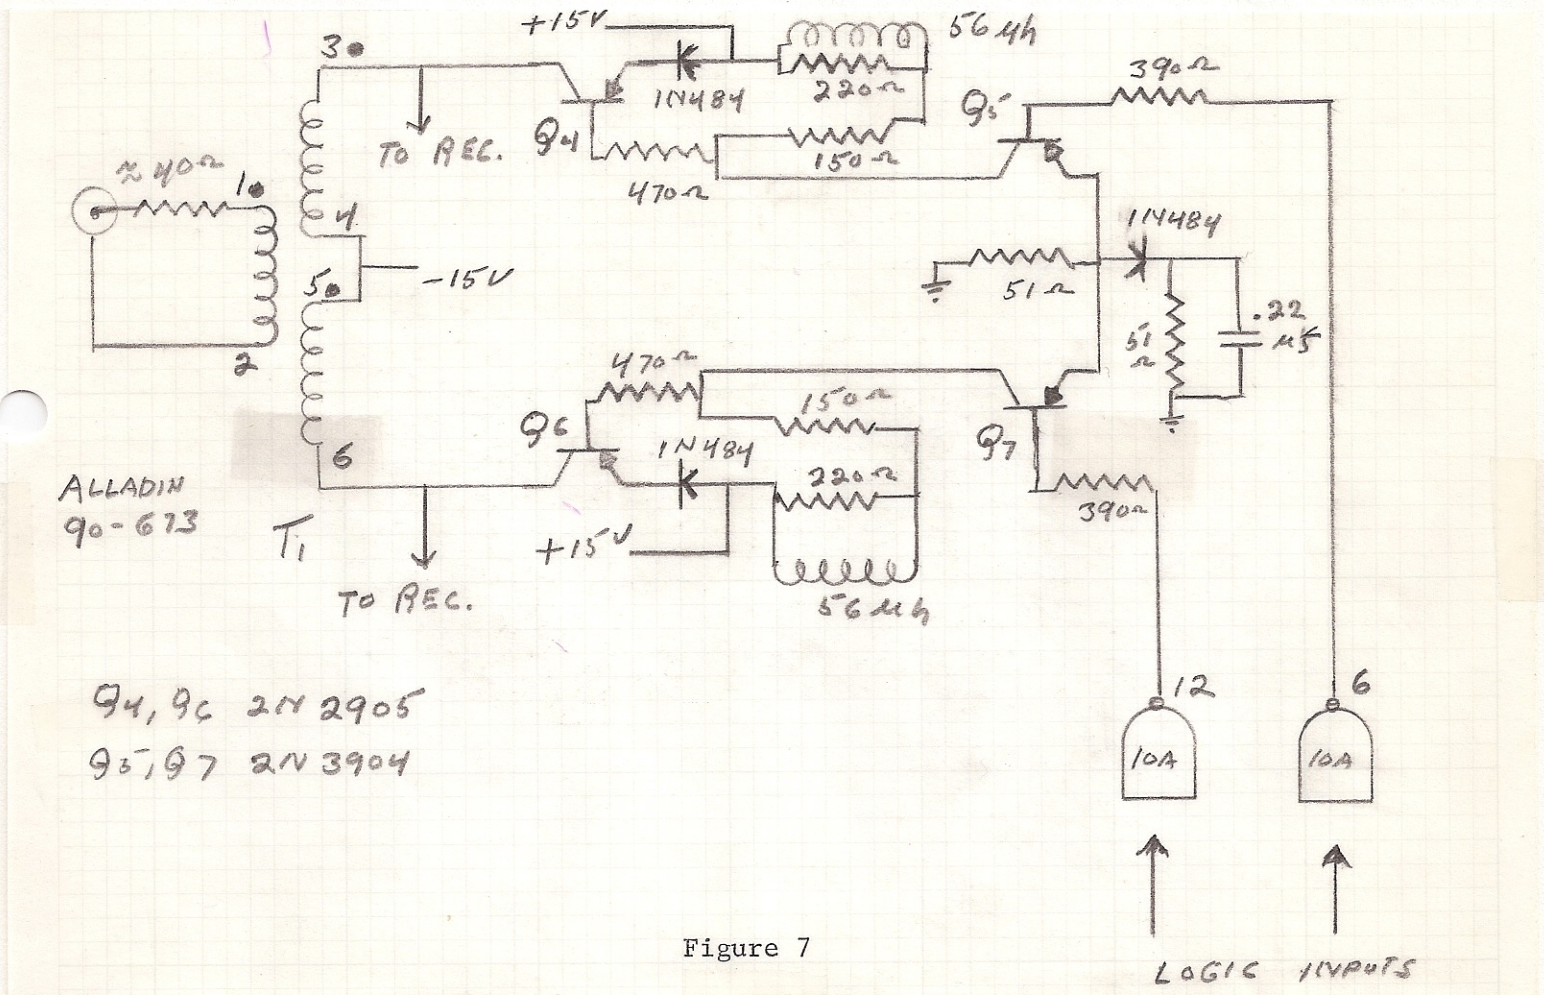 +15V
56 μh
3
1N484
220Ω
390Ω
Q5
TO REC.
Q4
150Ω
470Ω
≈40Ω
1
4
1N484
5
-15V
51Ω
.22
μf
51
Ω
2
470Ω
150Ω
Q6
1N484
Q7
6
220Ω
ALLADIN
90-673
T1
390Ω
+15V
TO REC.
56 μh
Q4, Q6 2N 2905
Q5, Q7 2N 3904
12
6
10A
10A
Figure 7
LOGIC INPUTS